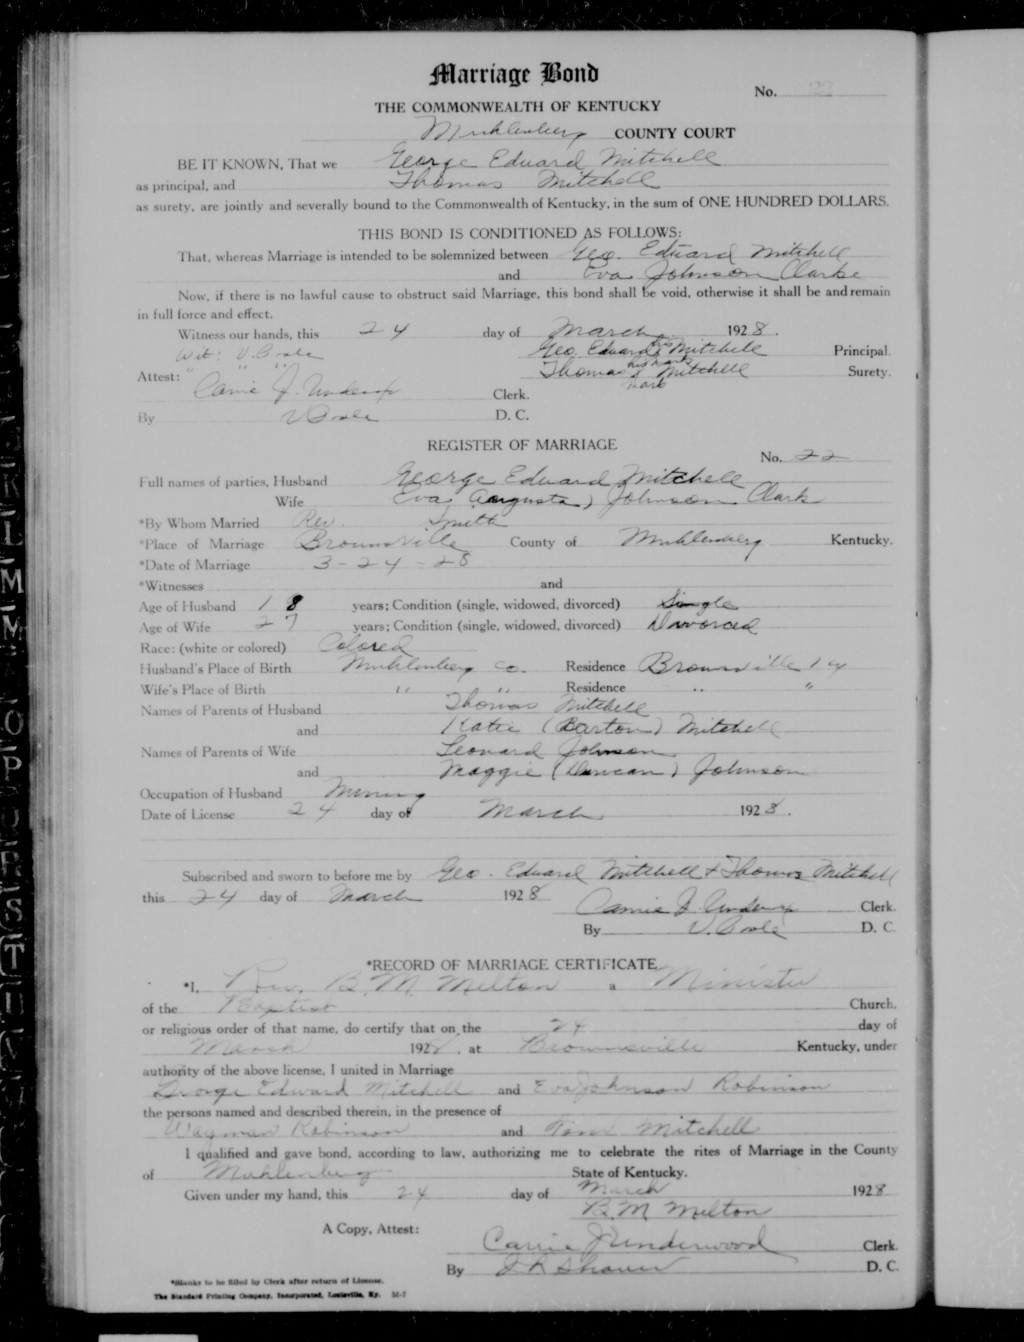 Marriage Bond
No. 22
THE COMMONWEALTH OF KENTUCKY
Muhlenberg COUNTY COURT
BE IT KNOWN, That we George Edward Mitchell
as principal, and Thomas Mitchell
as surety, are jointly and severally bound to the Commonwealth of Kentucky, in the sum of ONE HUNDRED DOLLARS.
THIS BOND IS CONDITIONED AS FOLLOWS:
That, whereas Marriage is intended to be solemnized between Geo. Edward Mitchell
and Eva Johnson Clark
Now, if there is no lawful cause to obstruct said Marriage, this bond shall be void, otherwise it shall be and remain
in full force and effect.
Witness our hands, this 24 day of March 1928.
Wit: V. Poole Geo. Edward Mitchell Principal.
Attest: " " " Thomas his x mark Mitchell Surety.
Carrie J. Underwood Clerk.
By V Poole D. C.
REGISTER OF MARRIAGE
No. 22
Full names of parties, Husband George Edward Mitchell
Wife Eva (Augusta) Johnson Clark
*By Whom Married Rev. Smith
*Place of Marriage Brownsville County of Muhlenberg Kentucky.
*Date of Marriage 3-24-28
*Witnesses and
Age of Husband 18 years; Condition (single, widowed, divorced) Single
Age of Wife 27 years; Condition (single, widowed, divorced) Divorced
Race: (white or colored) Colored
Husband's Place of Birth Muhlenberg Co. Residence Brownsville Ky
Wife's Place of Birth " " Residence " "
Names of Parents of Husband Thomas Mitchell
and Katie (Barton) Mitchell
Names of Parents of Wife Leonard Johnson
and Maggie (Duncan) Johnson
Occupation of Husband Mining
Date of License 24 day of March 1928.
Subscribed and sworn to before me by Geo. Edward Mitchell & Thomas Mitchell
this 24 day of March 1928
Carrie J. Underwood Clerk.
By V. Poole D. C.
*RECORD OF MARRIAGE CERTIFICATE
*I, Rev. B. M. Melton a Minister
of the Baptist Church.
or religious order of that name, do certify that on the 24 day of
March 1928, at Brownsville Kentucky, under
authority of the above license, I united in Marriage
George Edward Mitchell and Eva Johnson Robinson
the persons named and described therein, in the presence of
Wayman Robinson and Tom Mitchell
I qualified and gave bond, according to law, authorizing me to celebrate the rites of Marriage in the County
of Muhlenberg State of Kentucky.
Given under my hand, this 24 day of March 1928
B. M. Melton
A Copy, Attest:
Carrie J Underwood Clerk.
By D. C.
*Blanks to be filled by Clerk after return of License.
The Standard Printing Company, Incorporated, Louisville, Ky. M-7